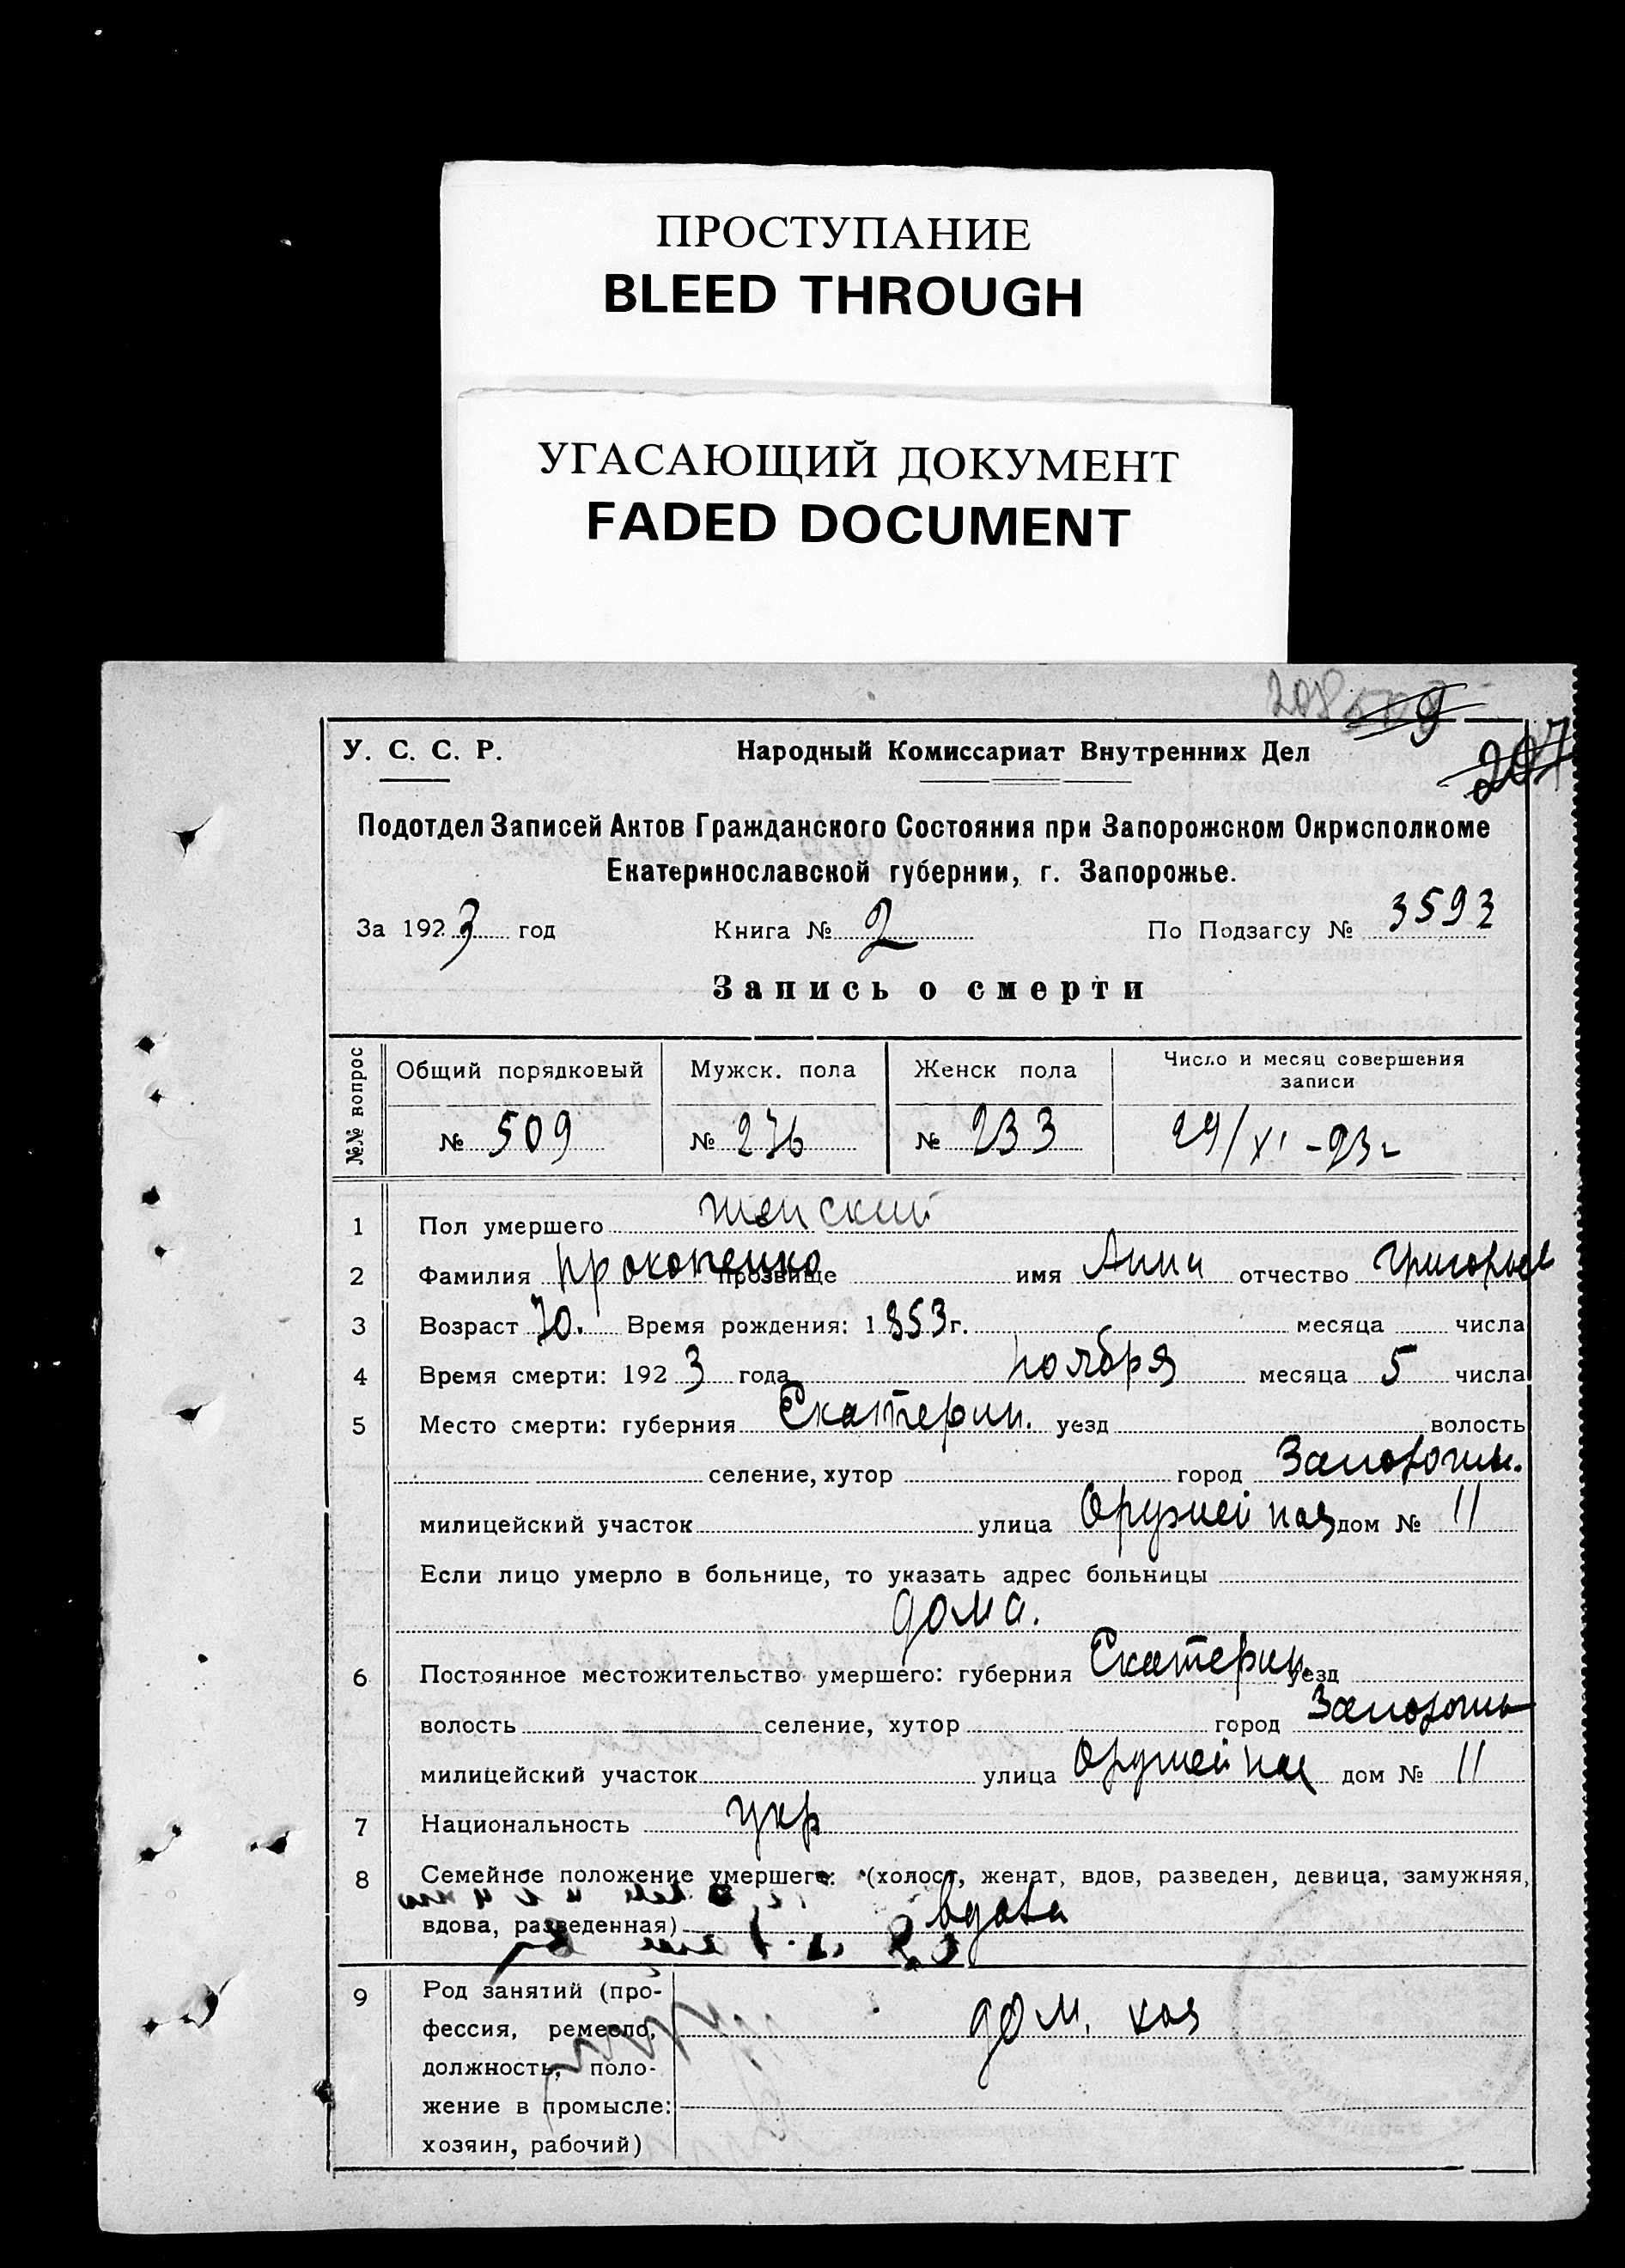 ПРОСТУПАНИЕ
BLEED THROUGH
УГАСАЮЩИЙ ДОКУМЕНТ
FADED DOCUMENT
208 9
207
У. С. С. Р. Народный Комиссариат Внутренних Дел
Подотдел Записей Актов Гражданского Состояния при Запорожском Окрисполкоме
Екатеринославской губернии, г. Запорожье.
За 1923 год Книга № 2 По Подзагсу № 3593
Запись о смерти
№№ вопрос Общий порядковый Мужск. пола Женск пола Число и месяц совершения
записи
№ 509 № 276 № 233 29/XI-23г
1 Пол умершего женский
2 Фамилия Прокопенко прозвище имя Анна отчество Григорьев
3 Возраст 70. Время рождения: 1853г. месяца числа
4 Время смерти: 1923 года ноября месяца 5 числа
5 Место смерти: губерния Екатерин. уезд волость
селение, хутор город Запорожь.
милицейский участок улица Оружейная дом № 11
Если лицо умерло в больнице, то указать адрес больницы
дома.
6 Постоянное местожительство умершего: губерния Екатерин. уезд
волость селение, хутор город Запорожь
милицейский участок улица Оружейная дом № 11
7 Национальность укр
8 Семейное положение умершего: (холост, женат, вдов, разведен, девица, замужняя,
вдова, разведенная) вдова
9 Род занятий (про-
фессия, ремесло, дом. хоз
должность, поло-
жение в промысле:
хозяин, рабочий)